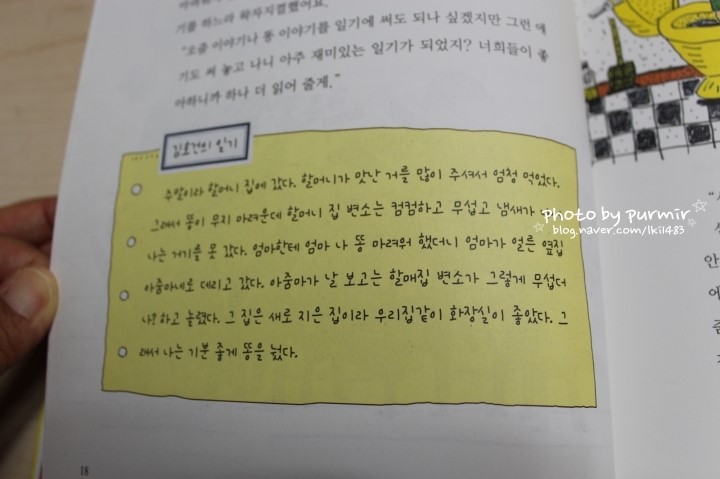 기를 하느라 왁자지껄했어요.
"오줌 이야기나 똥 이야기를 일기에 써도 되나 싶겠지만 그런 얘
기도 써 놓고 나니 아주 재미있는 일기가 되었지? 너희들이 좋
아하니까 하나 더 읽어 줄게."
김호건의 일기
주말이라 할머니 집에 갔다. 할머니가 맛난 거를 많이 주셔서 엄청 먹었다.
그래서 똥이 무지 마려운데 할머니 집 변소는 컴컴하고 무섭고 냄새가
나는 거기를 못 갔다. 엄마한테 엄마 나 똥 마려워 했더니 엄마가 얼른 옆집
아줌마네로 데리고 갔다. 아줌마가 날 보고는 할매집 변소가 그렇게 무섭더
나? 하고 놀렸다. 그 집은 새로 지은 집이라 우리집같이 화장실이 좋았다. 그
래서 나는 기분 좋게 똥을 눴다.
18
photo by purmir
blog.naver.com/lkil483
안
에